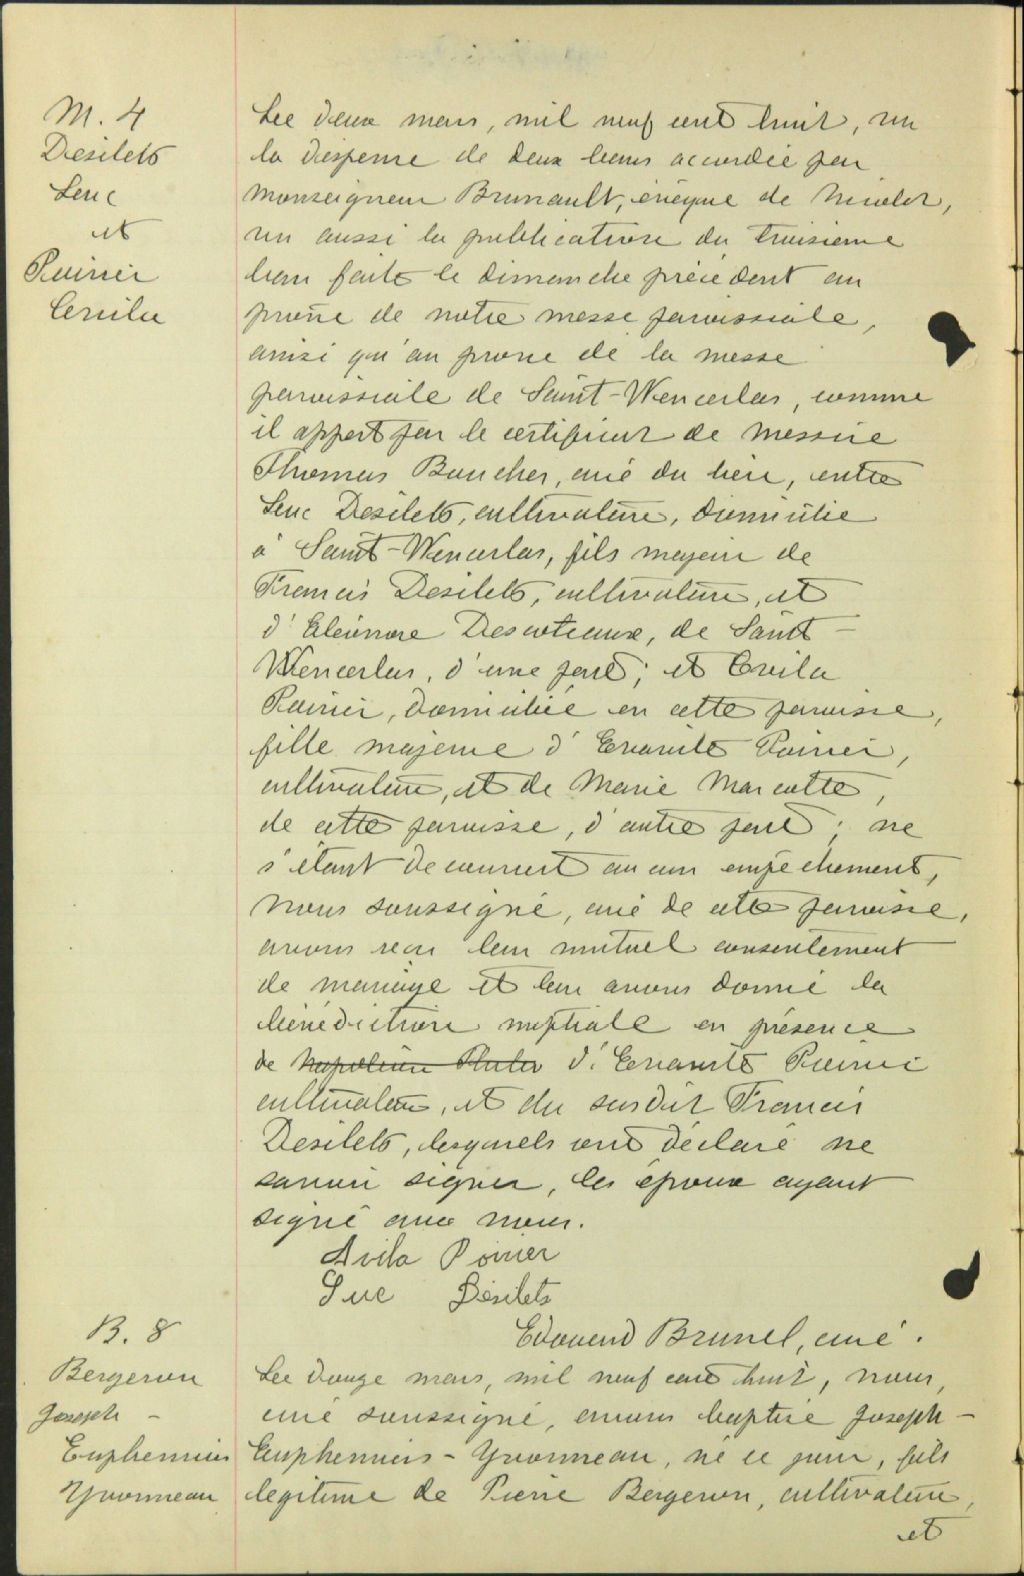 M. 4
Desilets
Luc
et
Poirier
Cevila
Le deux mars, mil neuf cent huit, vu
la dispense de deux bans accordée par
Monseigneur Brunault, évêque de Nicolet,
vu aussi la publication du troisième
ban faite le dimanche précédent au
prône de notre messe paroissiale,
ainsi qu'au prone de la messe
paroissiale de Saint-Wenceslas, comme
il appert par le certificat de Messire
Thomas Boucher, curé du lieu, entre
Luc Desilets, cultivateur, domicilié
à Saint-Wenceslas, fils majeur de
Francis Desilets, cultivateur, et
d'Eléonore Descoteaux, de Saint-
Wenceslas, d'une part; et
Poirier, domiciliée en cette paroisse,
fille majeure d'Evariste Poirier,
cultivateur, et de Marie Marcotte,
de cette paroisse, d'autre part; ne
s'étant decouvert aucun empêchement,
Nous soussigné, curé de cette paroisse,
avons reçu leur mutuel consentement
de mariage et leur avons donné la
bénédiction nuptiale en présence
de Napoléon d'Evariste Poirier
cultivateur, et du susdit Francis
Desilets, lesquels ont déclaré ne
savoir signer, les époux ayant
signé avec nous.
Avila Poirier
Luc Désilets
Edouard Brunel, curé.
B. 8
Bergeron
Joseph -
Euphemien
Yvonneau
Le douze mars, mil neuf cent huit, nous,
curé soussigné, avons baptisé Joseph-
Euphemien-Yvonneau, né ce jour, fils
legitime de Pierre Bergeron, cultivateur,
et